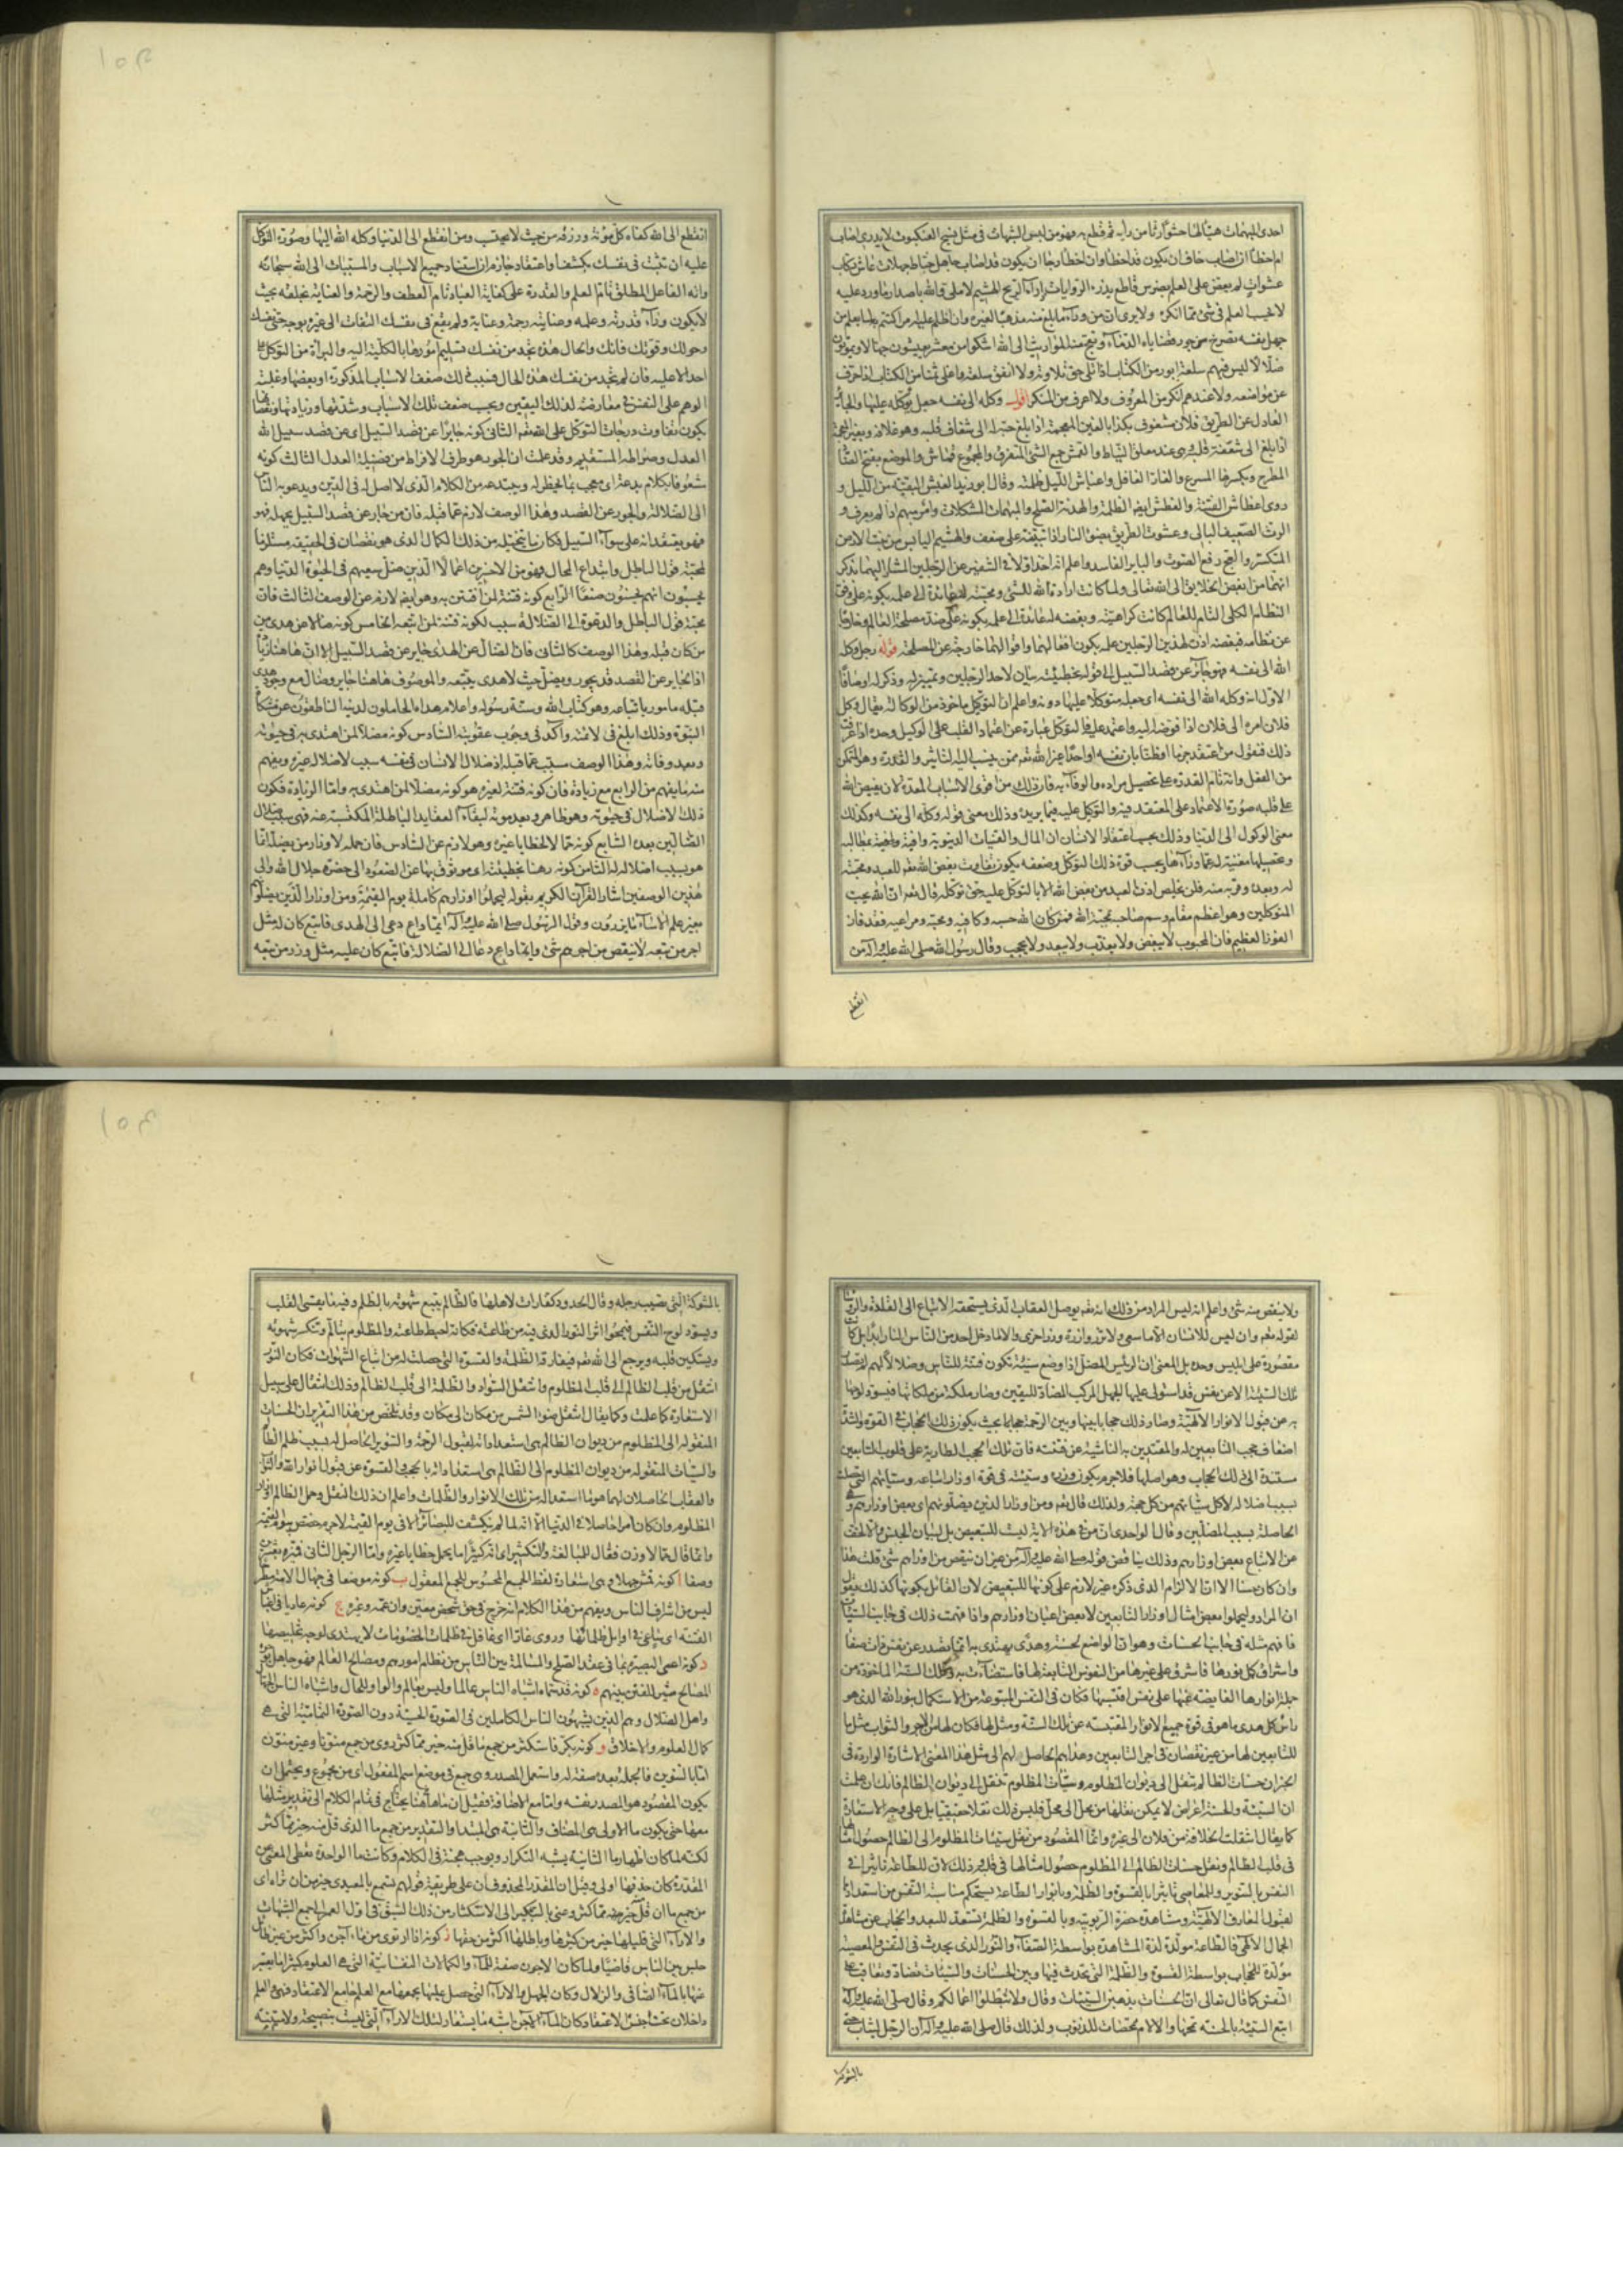 احدى المبهمات هيأ لها حشوا رثا من رأيه ثم قطع به فهو من لبس الشبهات فى مثل نسج العنكبوت لا يدرى اصاب
ام اخطأ ان اصاب خاف ان يكون قد اخطأ وان اخطأ رجا ان يكون قد اصاب جاهل خباط جهلات عاش ركاب
عشوات لم يعض على العلم بضرس قاطع يذرى الروايات اذراء الريح الهشيم لا ملى والله باصدار ما ورد عليه
لا يحسب العلم فى شئ مما انكره ولا يرى ان من وراء ما بلغ منه مذهبا لغيره وان اظلم عليه امر اكتتم به لما يعلم من
جهل نفسه تصرخ من جور قضاياه الدماء وتعج منه المواريث الى الله اشكو من معشر يعيشون جهالا ويموتون
ضلالا ليس فيهم سلعة ابور من الكتاب اذا تلى حق تلاوته ولا انفق سلعة ولا اغلى ثمنا من الكتاب اذا حرف
عن مواضعه ولا عندهم انكر من المعروف ولا اعرف من المنكر اقول وكله الى نفسه جعل توكله عليها والجائر
العادل عن الطريق فلان مشغوف بكذا بالغين المعجمة اذا بلغ حبه الى شغاف قلبه وهو غلافه وبغير المعجمة
اذا بلغ الى شعفة قلبه وهى عند معلق النياط والقمش جمع الشئ المتفرق والمجموع قماش والموضع بفتح الضاد
المطرح وبكسرها المسرع والغار الغافل واغباش الليل ظلمته وقال ابو زيد الغبش البقية من الليل و
روى اغطاش الفتنة والغطش ايضا الظلمة والهدنة الصلح والمبهمات المشكلات وامر مبهم اذا لم يعرف و
الرث الضعيف البالى وعشوت الطريق بضوء النار اذا تبينته على ضعف والهشيم اليابس من نبت الارض
المتكسر والعج رفع الصوت والبائر الفاسد واعلم انه اخذ اولا فى التنفير عن الرجلين المشار اليهما بذكر
انهما من ابغض الخلايق الى الله تعالى ولما كانت ارادة الله للشئ ومحبته له عائدة الى علمه بكونه على وفق
النظام الكلى التام للعالم كانت كراهيته وبغضه له عائدة الى علمه بكونه على ضد مصلحة العالم وخارجا
عن نظامه فبغضه اذن لهذين الرجلين علمه بكون افعالهما واقوالهما خارجة عن المصلحة قوله رجل وكله
الله الى نفسه فهو جائر عن قصد السبيل الى قوله بخطيئته بيان لاحد الرجلين وتمييز له وذكر له اوصافا
الاول انه وكله الله الى نفسه اى جعله متوكلا عليها دونه واعلم ان التوكيل ماخوذ من الوكالة يقال وكل
فلان امره الى فلان اذا فوضه اليه واعتمد عليه فالتوكل عبارة عن اعتماد القلب على الوكيل وحده اذا عرفت
ذلك فنقول من اعتقد جزما او ظنا بان نفسه او احدا غير الله تعم ممن ينسب اليه التاثير والقدرة هو المتمكن
من الفعل وانه تام القدرة على تحصيل مراده والوفاء به فان ذلك من اقوى الاسباب المعدة لان يفيض الله
على قلبه صورة الاعتماد على المعتقد فيه والتوكل عليه فيما يريده وذلك معنى قوله وكله الى نفسه وكذلك
معنى الوكول الى الدنيا وذلك بحسب اعتقاد الانسان ان المال والقنيات الدنيوية وافية بمطالبه
وتحصيلها مغنية له عما وراءها وبحسب قوة ذلك التوكل وضعفه يكون تفاوت بغض الله تعم للعبد ومحبته
له وبعده وقربه منه فلن يخلص اذن العبد من بغض الله الا بالتوكل عليه حق توكله قال تعم ان الله يحب
المتوكلين وهو اعظم مقام وسم صاحبه بمحبة الله فمن كان الله حسبه وكافيه ومحبه ومراعيه فقد فاز
الفوز العظيم فان المحبوب لا يبغض ولا يعذب ولا يبعد ولا يحجب وقال رسول الله صلى الله عليه وآله من
انقطع
انقطع الى الله كفاه كل مؤنة ورزقه من حيث لا يحتسب ومن انقطع الى الدنيا وكله الله اليها وصورة التوكل
عليه ان تثبت فى نفسك بكشف او اعتقاد جازم ان استناد جميع الاسباب والمسببات الى الله سبحانه
وانه الفاعل المطلق تام العلم والقدرة على كفاية العباد تام العطف والرحمة والعناية بخلقه بحيث
لا يكون وراء قدرته وعلمه وعنايته رحمة وعناية ولم يقع فى نفسك التفات الى غيره بوجه حتى نفسك
وحولك وقوتك فانك والحال هذه تجد من نفسك تسليم امورها بالكلية اليه والبراءة من التوكل على
احد الا عليه فان لم تجد من نفسك هذه الحال فسبب ذلك ضعف الاسباب المذكورة او بعضها وغلبة
الوهم على النفس فى معارضته لذلك اليقين وبحسب ضعف تلك الاسباب وشدتها وزيادتها ونقصانها
يكون تفاوت درجات التوكل على الله تعم الثانى كونه جائرا عن قصد السبيل اى عن قصد سبيل الله
العدل وصراطه المستقيم وقد علمت ان الجور هو طرف الافراط من فضيلة العدل الثالث كونه
مشغوفا بكلام بدعة اى معجب بما يخطر له ويبتدعه من الكلام الذى لا اصل له فى الدين ويدعو به الناس
الى الضلالة والجور عن القصد وهذا الوصف لازم عما قبله فان من جار عن قصد السبيل بجهله فهو
فهو يعتقد انه على سواء السبيل فكان ما يتخيله من ذلك الكمال الذى هو نقصان فى الحقيقة مستلزما
لمحبته قول الباطل وابتداع المحال فهو من الاخسرين اعمالا الذين ضل سعيهم فى الحيوة الدنيا وهم
يحسبون انهم يحسنون صنعا الرابع كونه فتنة لمن افتتن به وهو ايضا لازم عن الوصف الثالث فان
محبة قول الباطل والدعوة الى الضلالة سبب لكونه فتنة لمن اتبعه الخامس كونه ضالا عن هدى من
من كان قبله وهذا الوصف كالثانى فان الضال عن الهدى جاير عن قصد السبيل الا ان هاهنا زيادة
اذ الجاير عن القصد قد يجور ويضل حيث لا هدى يتبعه والموصوف هاهنا جاير وضال مع وجود هدى
قبله مامور باتباعه وهو كتاب الله وسنة رسوله واعلام هداه الحاملون لدينه الناطقون عن مشكاة
النبوة وذلك ابلغ فى لائمته وآكد فى وجوب عقوبته السادس كونه مضلا لمن اهتدى به فى حيوته
وبعد وفاته وهذا الوصف مسبب عما قبله اذ ضلال الانسان فى نفسه سبب لاضلال غيره ويفهم
منه ما يفهم من الرابع مع زيادة فان كونه فتنة لغيره هو كونه مضلا لمن اهتدى به واما الزيادة فكون
ذلك الاضلال فى حيوته وهو ظاهر وبعد موته لبقاء العقايد الباطلة المكتسبة عنه فهى سبب ضلال
الضالين بعده السابع كونه حمالا لخطايا غيره وهو لازم عن السادس فان حمله لاوزار من يضله انما
هو بسبب اضلاله له الثامن كونه رهنا بخطيئته اى موثوق بها عن الصعود الى حضرة جلال الله والى
هذين الوصفين اشار القرآن الكريم بقوله ليحملوا اوزارهم كاملة يوم القيمة ومن اوزار الذين يضلونهم
بغير علم الا ساء ما يزرون وقول الرسول صلى الله عليه وآله ايما داع دعى الى الهدى فاتبع كان له مثل
اجر من تبعه لا ينقص من اجرهم شئ وايما داع دعا الى الضلالة فاتبع كان عليه مثل وزر من تبعه
ولا ينقص منه شئ واعلم انه ليس المراد من ذلك انه تعم يوصل العقاب الذى يستحقه الاتباع الى القادة والرؤساء
لقوله تعم وان ليس للانسان الا ما سعى ولا تزر وازرة وزر اخرى والا لما دخل احد من الناس النار
مقصورة على ابليس وحده بل المعنى ان الرئيس المضل اذا وضع سيئة تكون فتنة للناس وضلالا لهم
تلك السيئة الا عن نفس قد استولى عليها الجهل المركب المضاد لليقين وصار ملكة من ملكاتها فيسود لوحها
به عن قبول الانوار الالهية وصار ذلك حجابا بينها وبين الرحمة بحيث يكون ذلك الحجاب فى القوة والشدة
اضعاف حجب التابعين له والمقتدين به الناشية عن فتنته فان تلك الحجب الطارية على قلوب التابعين
مستندة الى ذلك الحجاب وهو اصلها فلا جرم يكون وزره وسيئته فى قوة اوزار اتباعه وسيئاتهم التى حصلت
بسبب اضلاله لا كل سيئاتهم من كل جهة ولذلك قال تعم ومن اوزار الذين يضلونهم اى بعض اوزارهم وهى
الحاصلة بسبب المضلين وقال الواحدى ان من فى هذه الآية ليست للتبعيض بل لبيان الجنس والا لخف
عن الاتباع بعض اوزارهم وذلك يناقض قوله صلى الله عليه وآله من غير ان ينقص من اوزارهم شئ قلت هذا
وان كان حسنا الا ان الالزام الذى ذكره غير لازم على كونها للتبعيض لان القائل بكونها كذلك يقول
ان المراد وليحملوا بعض امثال اوزار التابعين لا بعض اعيان اوزارهم واذا فهمت ذلك فى جانب السيئات
فافهم مثله فى جانب الحسنات وهو ان الواضع لحسنة وهدى يهتدى به انما يصدر عن نفس ذات صفاء
واشراق كل نورها فاشرق على غيرها من النفوس التابعة لها فاستضاءت به وتلك السنة الماخوذة من
جملة انوارها الفايضة عنها على نفس اقتبستها فكان فى النفس المتبوعة من الاستكمال بنور الله الذى هو
راس كل هدى ما هو فى قوة جميع الانوار المقتبسة عن تلك السنة ومثل لها فكان لها من الاجر والثواب مثل ما
للتابعين لها من غير نقصان فى اجر التابعين وهداهم الحاصل لهم الى مثل هذا المعنى الاشارة الواردة فى
الخبر ان حسنات الظالم تنتقل الى ديوان المظلوم وسيئات المظلوم تنتقل الى ديوان الظالم فانك ان علمت
ان السيئة والحسنة اعراض لا يمكن نقلها من محل الى محل فليس ذلك نقلا حقيقيا بل على وجه الاستعارة
كما يقال انتقلت الخلافة من فلان الى غيره وانما المقصود من نقل سيئات المظلوم الى الظالم حصول امثالها
فى قلب الظالم ونقل حسنات الظالم الى المظلوم حصول امثالها فى قلبه وذلك لان للطاعة تاثيرا فى
النفس بالتنوير وللمعاصى تاثيرا بالقسوة والظلمة وبانوار الطاعة يستحكم مناسبة النفس من استعدادها
لقبول المعارف الالهية ومشاهدة حضرة الربوبية وبالقسوة والظلمة تستعد للبعد والحجاب عن مشاهدة
الجمال الالهى فالطاعة مولدة لذة المشاهدة بواسطة الصفاء والنور الذى يحدث فى النفس والمعصية
مولدة للحجاب بواسطة القسوة والظلمة التى تحدث فيها وبين الحسنات والسيئات تضاد وتعاقب على
النفس كما قال تعالى ان الحسنات يذهبن السيئات وقال ولا تبطلوا اعمالكم وقال صلى الله عليه وآله
اتبع السيئة بالحسنة تمحها والآلام ممحصات للذنوب ولذلك قال صلى الله عليه وآله ان الرجل ليثاب حتى
بالشوكة
بالشوكة التى تصيب رجله وقال الحدود كفارات لاهلها فالظالم يتبع شهوته بالظلم وفيه ما يقسى القلب
ويسود لوح النفس فيمحو اثر النور الذى فيه من طاعته فكانه احبط طاعته والمظلوم يتألم وتنكسر شهوته
ويستكين قلبه ويرجع الى الله تعم فيفارقه الظلمة والقسوة التى حصلت له من اتباع الشهوات فكان النور
انتقل من قلب الظالم الى قلب المظلوم وانتقل السواد والظلمة الى قلب الظالم وذلك انتقال على سبيل
الاستعارة كما علمت وكما يقال انتقل ضوء الشمس من مكان الى مكان وقد تلخص من هذا التقرير ان الحسنات
المنقولة الى المظلوم من ديوان الظالم هى استعداداته لقبول الرحمة والتنوير الحاصل له بسبب ظلم الظالم
والسيئات المنقولة من ديوان المظلوم الى الظالم هى استعداداته بالحجب والقسوة عن قبول انوار الله والثواب
والعقاب الحاصلان لهما هو ما استعدا له من تلك الانوار والظلمات واعلم ان ذلك النقل وحمل الظالم اوزار
المظلوم وان كان امرا حاصلا فى الدنيا الا انه لما لم ينكشف للبصائر الا فى يوم القيمة لا جرم خصص بيوم القيمة
وانما قال حمالا وزن فعال للمبالغة والتكثير اى انه كثيرا ما يحمل خطايا غيره واما الرجل الثانى فميزه بقيود
وصفا ا كونه قمش جهلا وهى استعارة لفظ الجمع المحسوس للجمع المعقول ب كونه موضعا فى جهال الامة
ليس من اشراف الناس ويفهم من هذا الكلام انه خرج فى حق شخص معين وان عمه وغيره ج كونه عاديا فى اغباش
الفتنة اى ساع فى اوائل ظلماتها وروى غارا اى غافل فى ظلمات الخصومات لا يهتدى لوجه تخليصها
د كونه اعمى البصيرة بما فى عقد الصلح والمسالمة بين الناس من نظام امورهم ومصالح العالم فهو جاهل بوجوه
المصالح مثير للفتن بينهم ه كونه قد سماه اشباه الناس عالما وليس بعالم والواو للحال واشباه الناس الجهال
واهل الضلال وهم الذين يشبهون الناس الكاملين فى الصورة الحسية دون الصورة التمامية التى هى
كمال العلوم والاخلاق و كونه بكر فاستكثر من جمع ما قل منه خير مما كثر وروى من جمع منونا وغير منون
اما بالتنوين فالجملة بعده صفة له واستعمل المصدر وهى جمع فى موضع اسم المفعول اى من مجموع ويحتمل ان
يكون المقصود هو المصدر نفسه واما مع الاضافة فقيل ان ما هاهنا يحتاج فى تمام الكلام الى تقدير مثلها
معها حتى يكون ما الاولى هى المضاف والثانية هى المبتدا والتقدير من جمع ما الذى قل منه خير مما كثر
لكنه لما كان اظهار ما الثانية يشبه التكرار ويوجب هجنة فى الكلام وكانت ما الواحدة تعطى المعنى عن
المقدرة كان حذفها اولى وقيل ان المقدر المحذوف ان على طريقة قولهم تسمع بالمعيدى خير من ان تراه اى
من جمع ما ان قل منه خير مما كثر وعنى بالتبكير الى الاستكثار من ذلك السبق فى اول العمر الى جمع الشبهات
والآراء التى قليلها خير من كثيرها وباطلها اكثر من حقها ز كونه اذا ارتوى من ماء آجن واكثر من غير طائل
جلس بين الناس قاضيا ولما كان الاجون صفة للماء والكمالات النفسانية التى هى العلوم كثيرا ما يعبر
عنها بالماء الصافى والزلال وكان الجهل والآراء التى حصل عليها يجمعها مع العلم جامع الاعتقاد فهى والعلم
داخلان تحت جنس الاعتقاد وكان الماء الآجن اشبه ما يستعار لتلك الآراء التى ليست بنصيحة ولا متينة